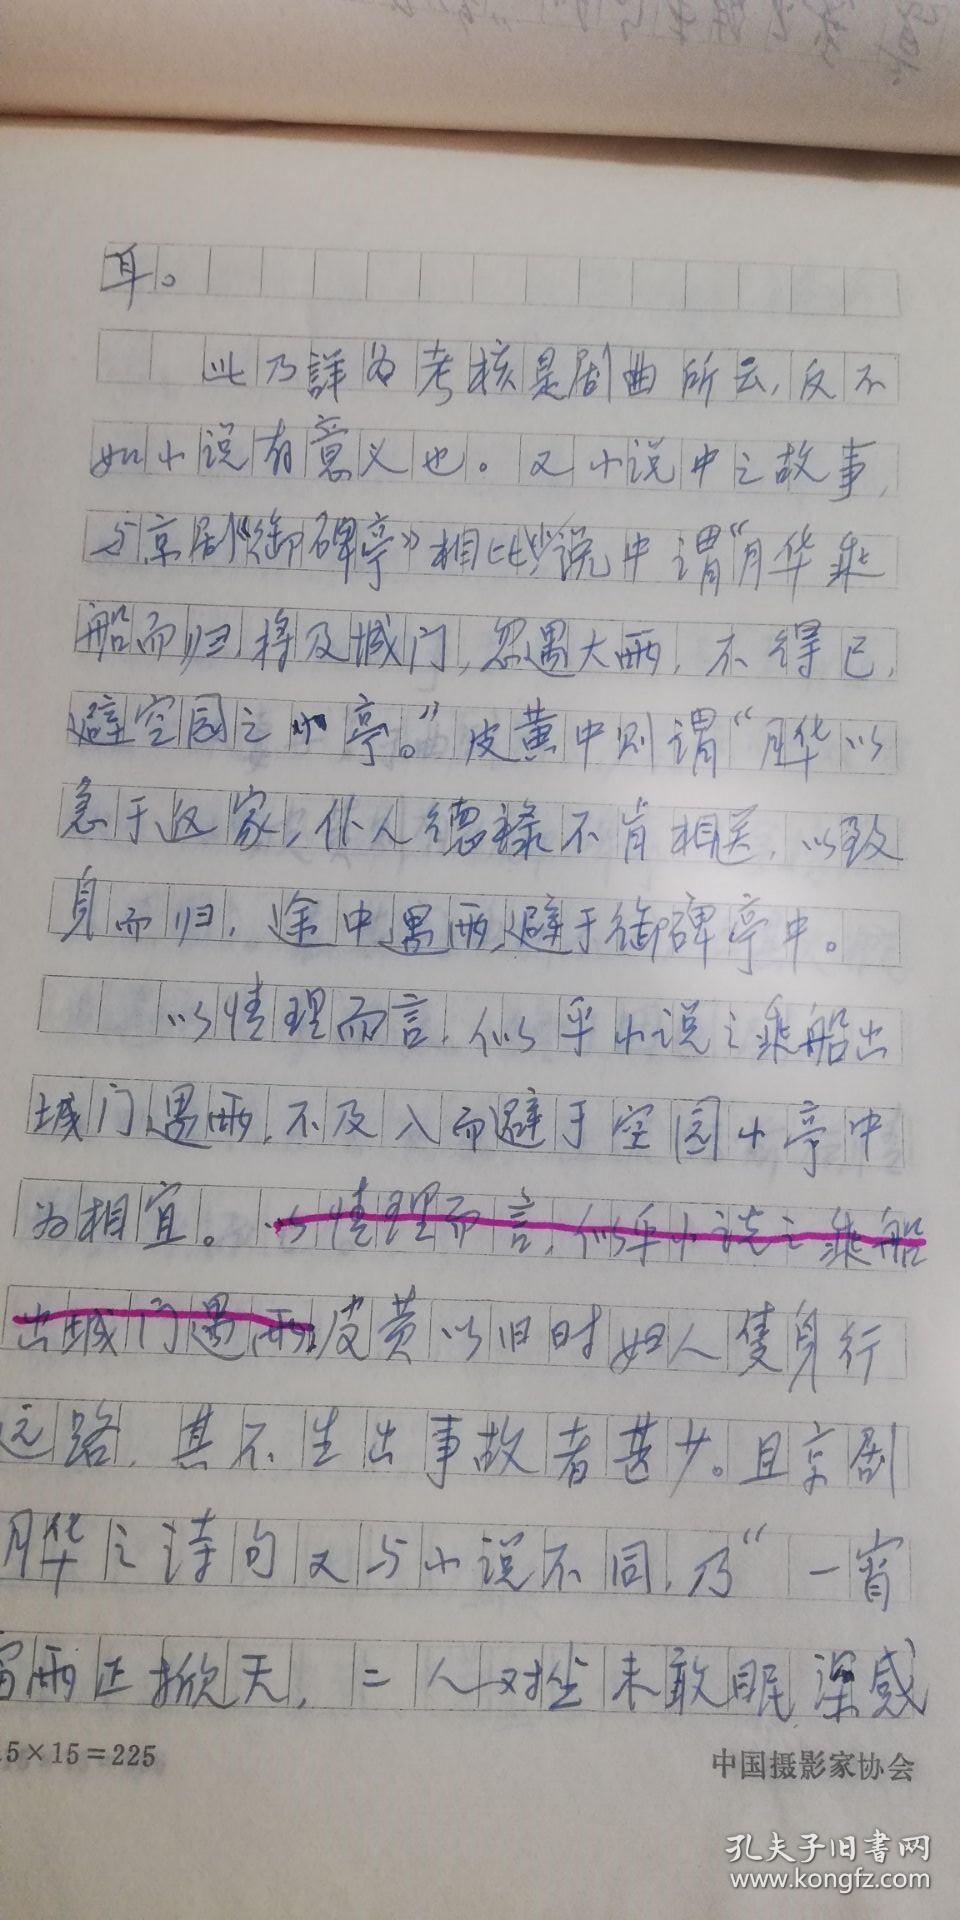 耳。
此乃詳为考核是剧曲所云，反不
如小说有意义也。又小说中之故事，
与京剧《御碑亭》相比，小说中谓“月华乘
船而归，将及城门，忽遇大雨，不得已，
避空园之小亭。”皮黄中则谓“月华以
急于返家，仆人德禄不肯相送，以致
身而归，途中遇雨，避于御碑亭中。
以情理而言，似乎小说之乘船出
城门遇雨，不及入而避于空园小亭中
为相宜。以情理而言，似乎小说之乘船
出城门遇雨，皮黄以旧时妇人隻身行
远路，其不生出事故者甚少。且京剧
月华之诗句又与小说不同，乃“一宵
雨正掀天，二人对坐未敢眠，深感
15×15=225
中国摄影家协会
孔夫子旧书网
www.kongfz.com